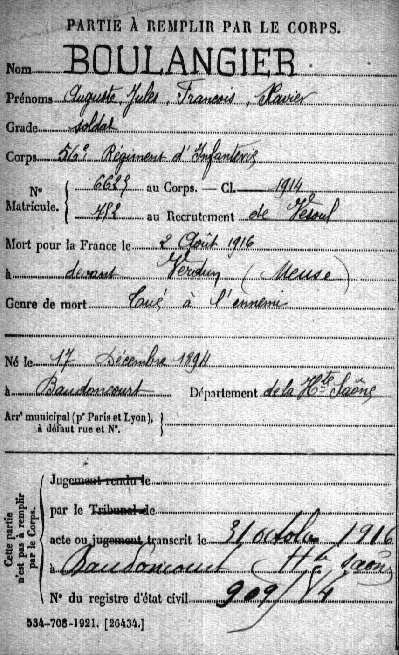 PARTIE À REMPLIR PAR LE CORPS.
Nom BOULANGIER
Prénoms Auguste, Jules, Francois, Xavier
Grade soldat
Corps 56e Régiment d'Infanterie
N° Matricule. { 6629 au Corps. — Cl. 1914
482 au Recrutement de Vésoul
Mort pour la France le 2 Août 1916
à devant Verdun (Meuse)
Genre de mort Tué à l'ennemi
Né le 17 Décembre 1894
à Baudoncourt Département de la Hte Saône
Arrt municipal (pr Paris et Lyon), à défaut rue et N°. }
Cette partie n'est pas à remplir par le Corps.
Jugement rendu le
par le Tribunal de
acte ou jugement transcrit le 31 octobre 1916
à Baudoncourt Hte Saône
N° du registre d'état civil 909/84
534-708-1921. [26434.]